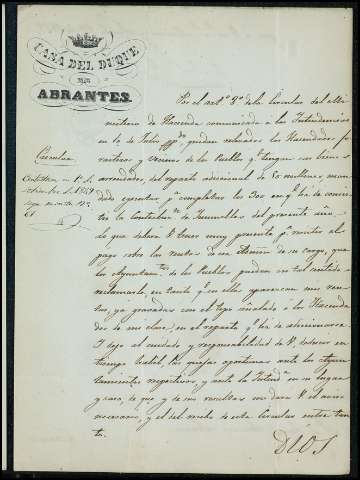 CASA DEL DUQUE
DE
ABRANTES.
Circular
Por el artº 8º de la Circular del Mi
nisterio de Hacienda comunicada á la Intendencia
en 19 de Julio ppdo, quedan relevados los Hacendados fo
rasteros y vecinos de los Pueblos qe tengan sus bienes
arrendados, del reparto adicional de 50 millones man
dado egecutar pa completar los 300 en qe ha de consis
tir la Contribuon de Inmuebles del presente año
lo que deberá V. tener muy presente pa resistir el
pago sobre las rentas de esa Admon de su cargo, que
los Ayuntamtos de los Pueblos puedan en tal sentido
reclamarle, en tanto qe en ellos aparezcan mis ren
tas, ya gravadas con el tipo señalado á los Hacenda
dos de mi clase, en el reparto qe ha de
Y dejo al cuidado y responsabilidad de V. deducir en
tiempo habil, las quejas oportunas ante los Ayun
tamientos respectivos, y ante la Intenda en su lugar
y caso, de que y de sus resultas me dará V. el aviso
necesario, y el del recibo de esta Circular entre tan
to.
DIOS